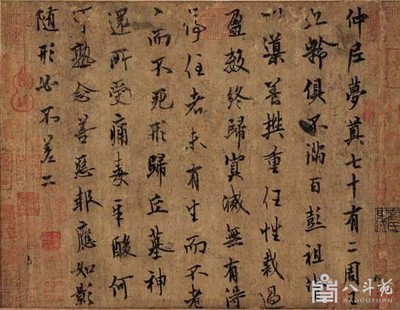 仲尼夢奠七十有二周王
九齡俱不滿百彭祖
以導養樊重任性裁過
盈數終歸冥滅無有得
停住者未有生而不老
老而不死形歸丘墓神
還所受痛毒辛酸何
可熟念善惡報應如影
隨形必不差二
八斗苑
BADOUYUAN